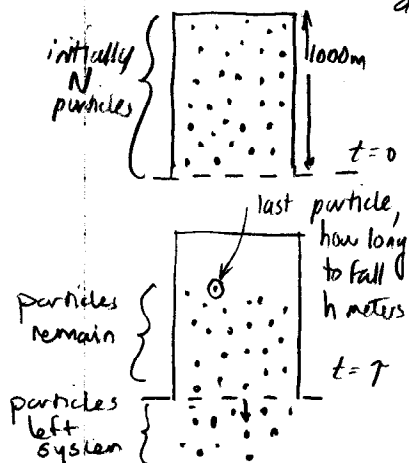 initially
N
particles
1000m
t=0
last particle,
how long
to fall
h meters
particles
remain
t=τ
particles
left
system